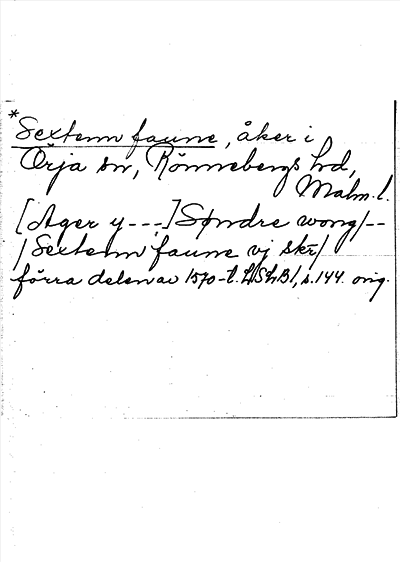 *Sextenn faune, åker i
Örja sn, Rönnebergs hd,
Malm. l.
[Ager y ---] Søndre wong/--
/Sextenn faune vj skr/
förra delen av 1570-t. LSLB1, s. 144. orig.